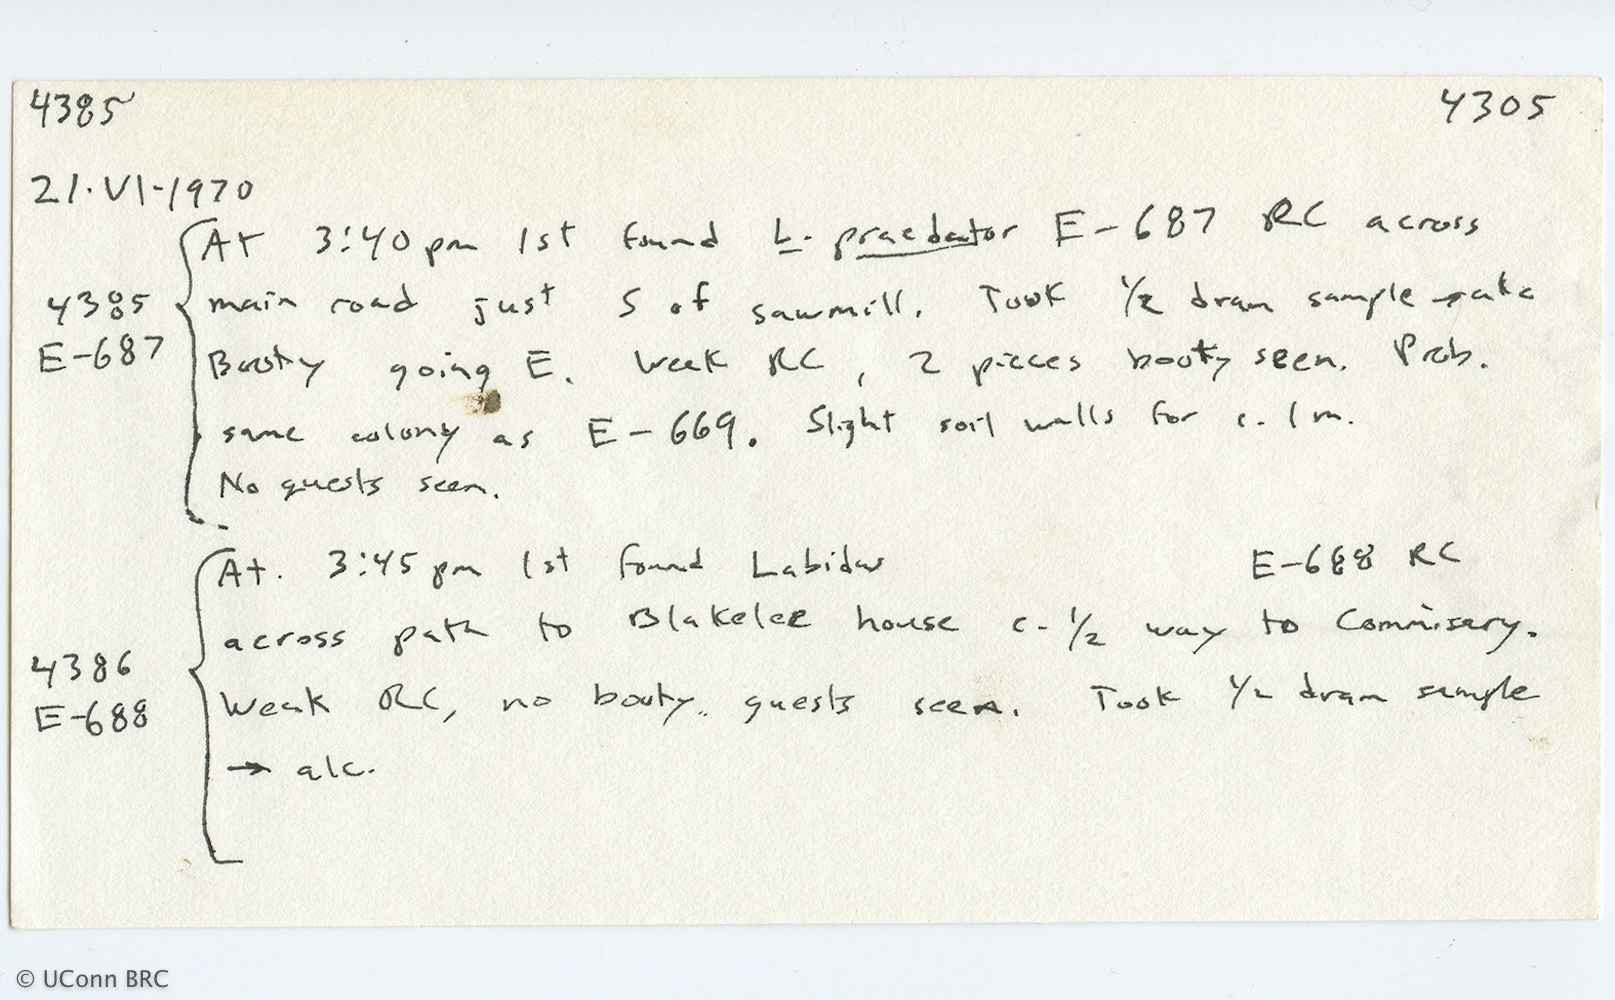 4385 4305
21·VI-1970
At 3:40 pm 1st found L. praedator E-687 RC across
4385 main road just S of sawmill. Took 1/2 dram sample → alc
E-687 Booty going E. Weak RC, 2 pieces booty seen. Prob.
same colony as E-669. Slight soil walls for c. 1 m.
No guests seen.
At. 3:45 pm 1st found Labidus E-688 RC
across path to Blakelee house c. 1/2 way to Commisary.
4386
E-688 Weak RC, no booty.. guests seen. Took 1/2 dram sample
→ alc.
© UConn BRC